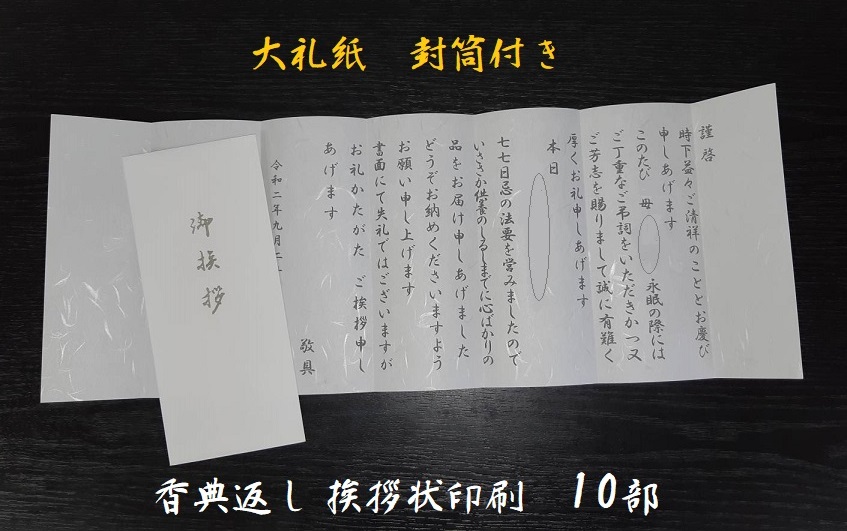 大礼紙 封筒付き
謹啓
時下益々ご清祥のこととお慶び
申しあげます
このたび 母 永眠の際には
ご丁重なご弔詞をいただきかつ又
ご芳志を賜りまして誠に有難く
厚くお礼申しあげます
本日
七七日忌の法要を営みましたので
いささか供養のしるしまでに心ばかりの
品をお届け申しあげました
どうぞお納めくださいますよう
お願い申し上げます
書面にて失礼ではございますが
お礼かたがた ご挨拶申し
あげます
敬具
令和二年九月二
御挨拶
香典返し 挨拶状印刷 10部